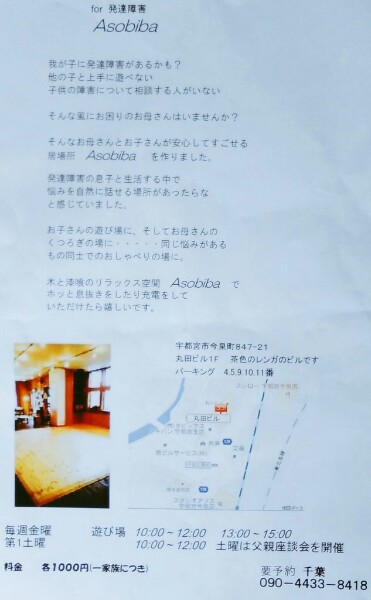 for 発達障害
Asobiba
我が子に発達障害があるかも？
他の子と上手に遊べない
子供の障害について相談する人がいない
そんな風にお困りのお母さんはいませんか？
そんなお母さんとお子さんが安心してすごせる
居場所 Asobiba を作りました。
発達障害の息子と生活する中で
悩みを自然に話せる場所があったらな
と感じていました。
お子さんの遊び場に、そしてお母さんの
くつろぎの場に・・・・・同じ悩みがある
もの同士でのおしゃべりの場に。
木と漆喰のリラックス空間 Asobiba で
ホッと息抜きをしたり充電をして
いただけたら嬉しいです。
宇都宮市今泉町847-21
丸田ビル1F 茶色のレンガのビルです
パーキング 4.5.9.10.11番
丸田ビル
毎週金曜 遊び場 10:00~12:00 13:00~15:00
第1土曜 10:00~12:00 土曜は父親座談会を開催
料金 各1000円(一家族につき)
要予約 千葉
090-4433-8418